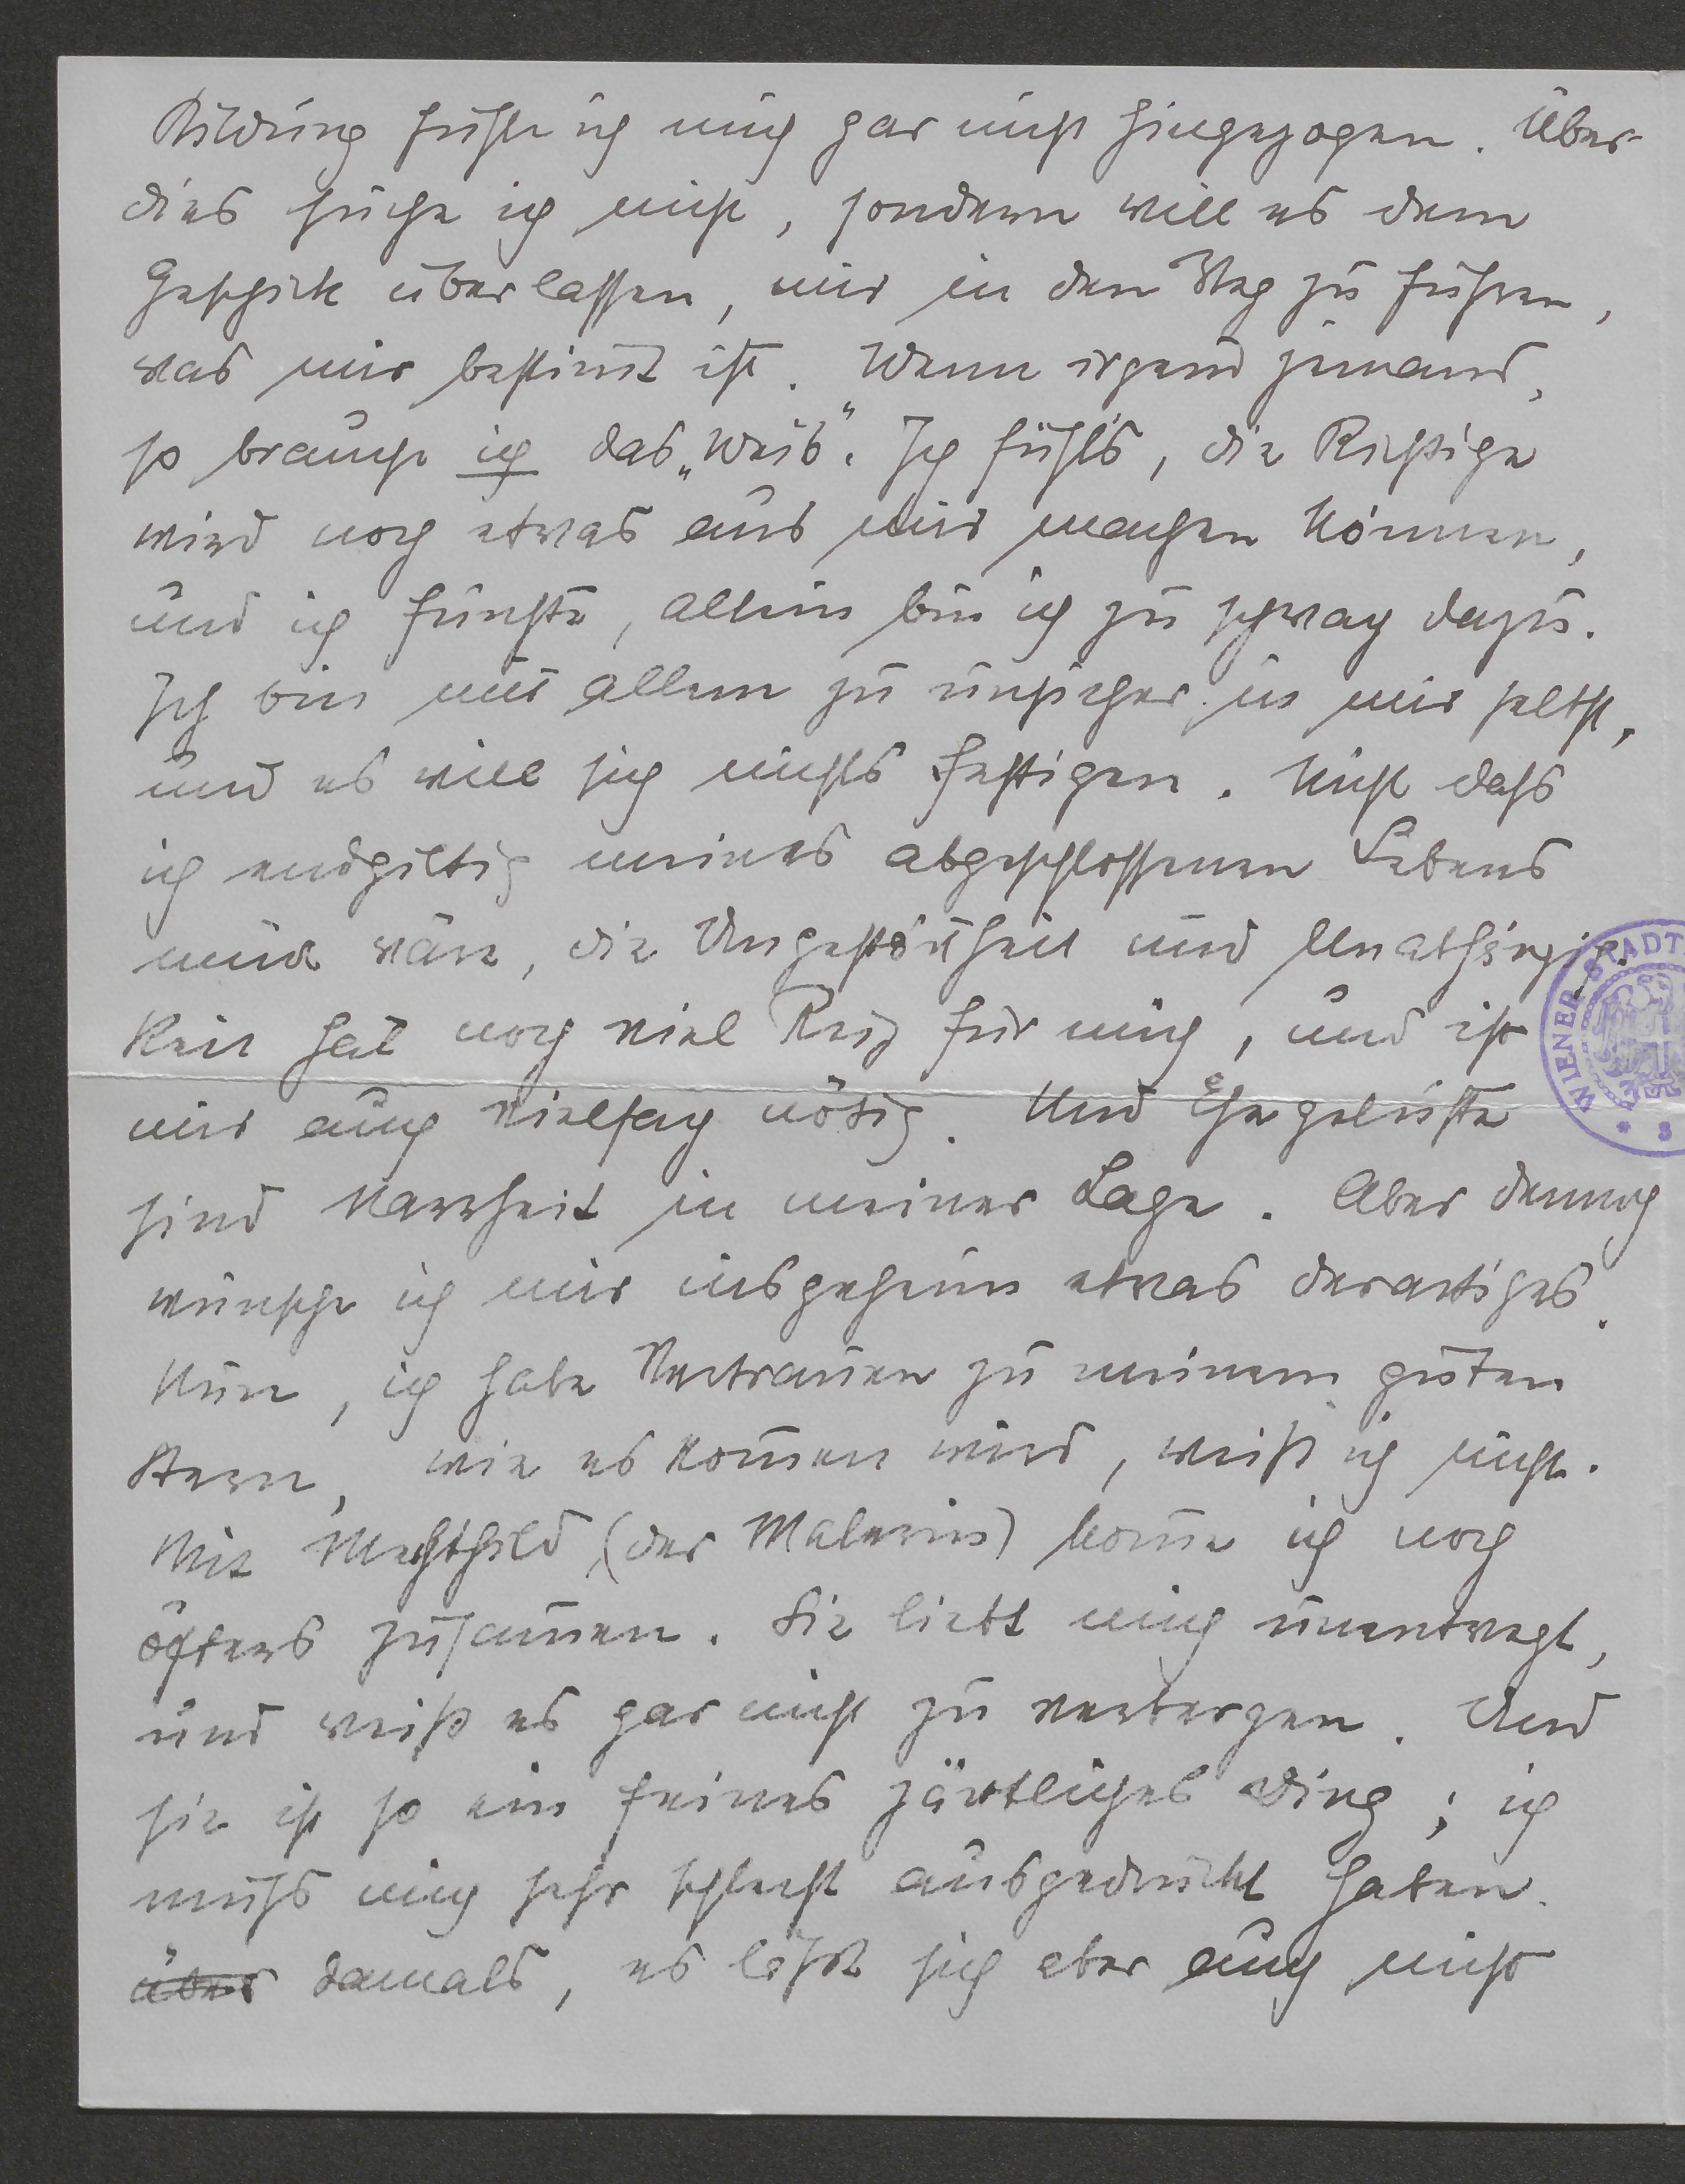 Bildung fühle ich mich gar nicht hingezogen. Über-
dies suche ich nicht, sondern will es dem
Geschick überlassen, mir in den Weg zu führen,
was mir bestim̅t ist. Wenn irgend jemand,
so brauche ich das „Weib“. Ich fühl's, die Richtige
wird noch etwas aus mir machen können,
und ich fürchte, allein bin ich zu schwach dazu.
Ich bin mit allem zu unsicher in mir selbst,
und es will sich nichts festigen. Nicht dass
ich endgiltig meines abgeschlossenen Lebens
müde wäre, die Ungestörtheit und Unabhängig-
keit hat noch viel Reiz für mich, und ist
mir auch vielfach nötig. Und Ehegelüste
sind Narrheit in meiner Lage. Aber dennoch
wünsche ich mir insgeheim etwas derartiges.
Nun, ich habe Vertrauen zu meinem guten
Stern, wie es kom̅en wird, weiß ich nicht.
Mit Mechthild (der Malerin) kom̅e ich noch
öfters zusam̅en. Sie liebt mich unentwegt,
und weiß es gar nicht zu verbergen. Und
sie ist so ein feines zärtliches Ding; ich
muss mich sehr schlecht ausgedrückt haben
über damals, es lässt sich aber auch nicht
WIENER STADT